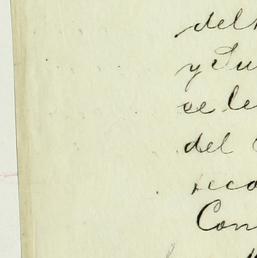 del
y Ju
se le
del
reco
Con